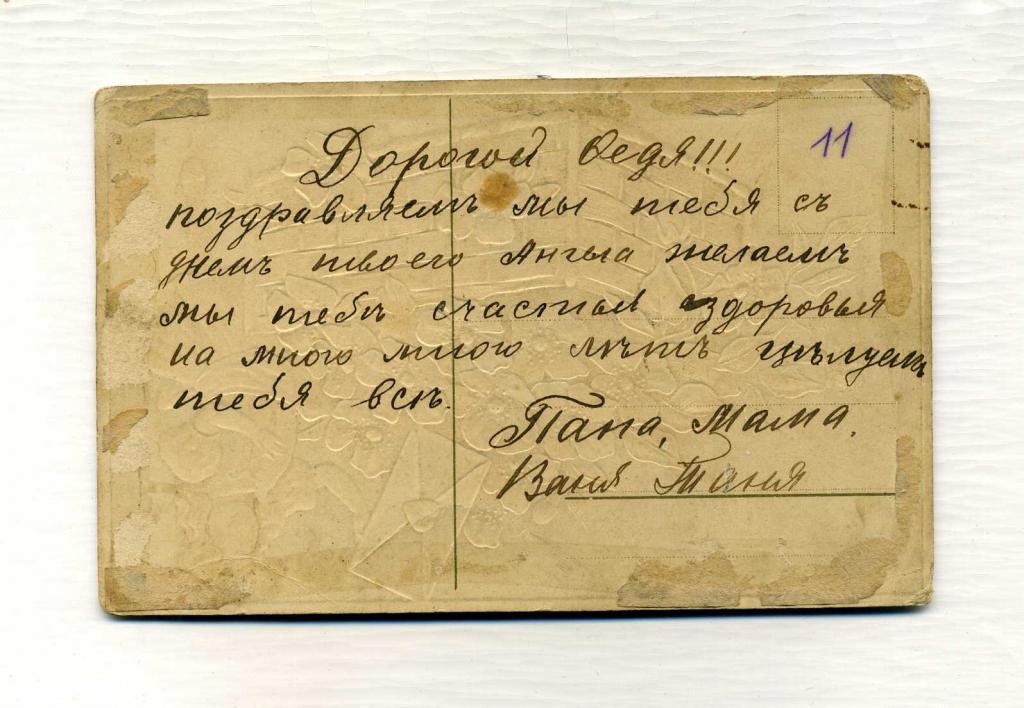 11
Дорогой Ѳедя!!!
поздравляемъ мы тебя съ
днемъ твоего Ангела желаемъ
мы тебѣ счастья здоровья
на много много лѣтъ цѣлуемъ
тебя всѣ.
Папа, Мама.
Ваня Таня